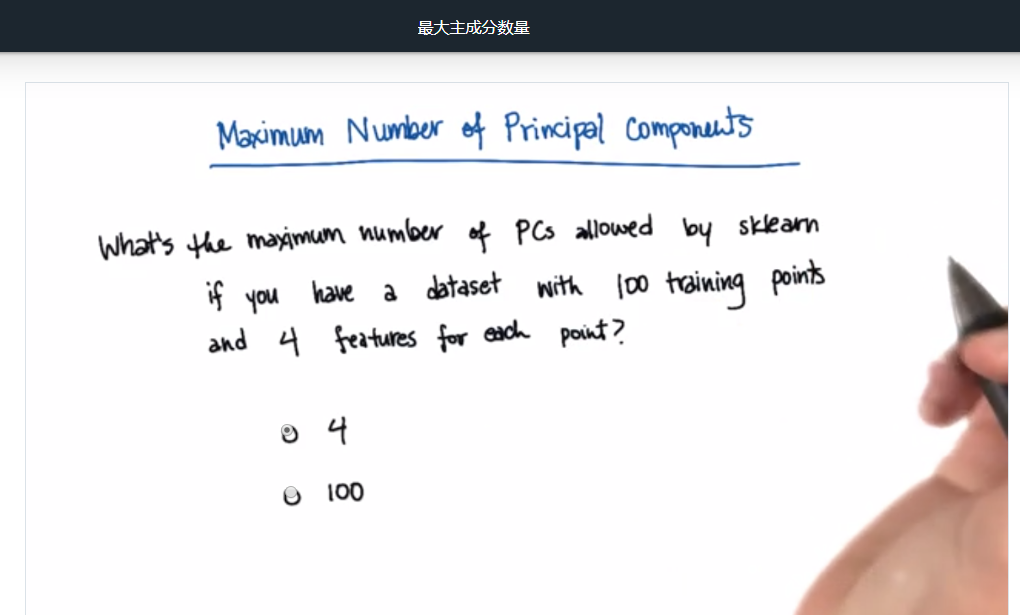 最大主成分数量
Maximum Number of Principal Components
What's the maximum number of PCs allowed by sklearn
if you have a dataset with 100 training points
and 4 features for each point?
4
100